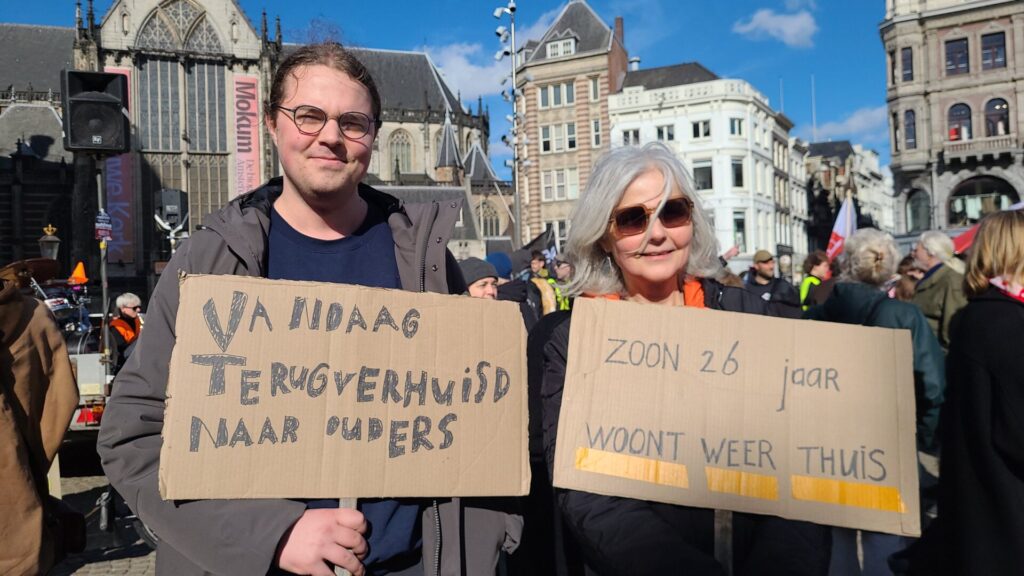 VANDAAG
TERUGVERHUISD
NAAR OUDERS
ZOON 26 jaar
WOONT WEER THUIS
Mokum